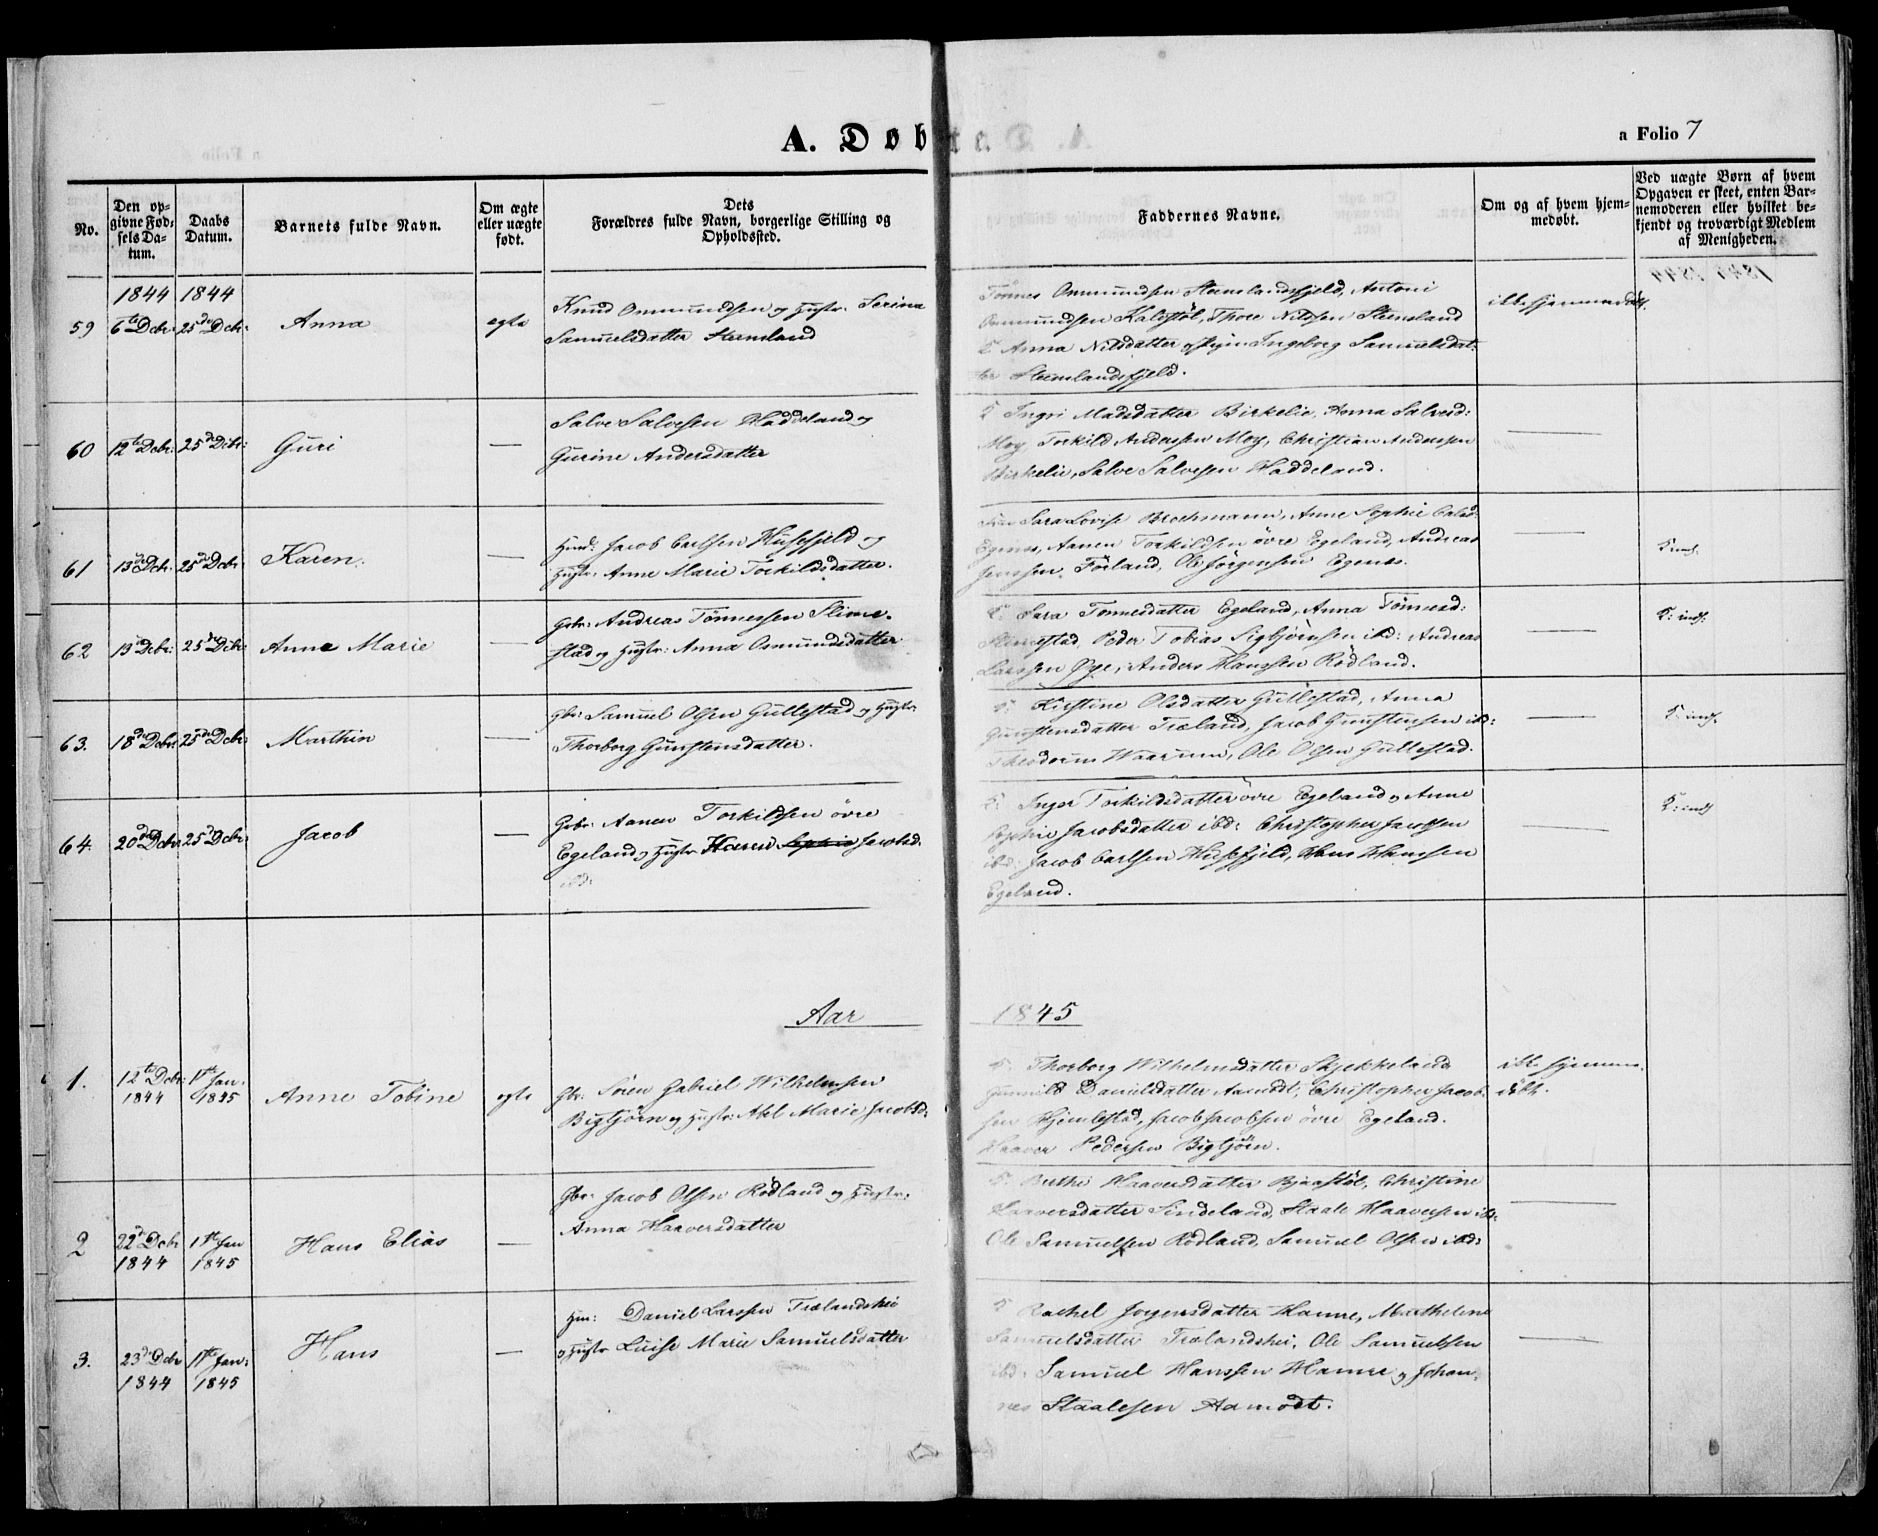 A. Døbte.
a Folio 7
No.
Den op-
givne Fød-
sels Da-
tum.
Daabs
Datum.
Barnets fulde Navn.
Om ægte
eller uægte
født.
Dets
Forældres fulde Navn, borgerlige Stilling og
Opholdssted.
Faddernes Navne.
Om og af hvem hjem-
medøbt.
Ved uægte Børn af hvem
Opgaven er skeet, enten Bar-
nemoderen eller hvilket be-
kjendt og troværdigt Medlem
af Menigheden.
1844 1844
59 6te Dcbr: 25de Dcbr: Anna egte
Knud Ommundsen og Hustr: Serina
Samuelsdatter Steensland
Tönnes Ommundsen Steenslandsfjeld, Antoni
Ommundsen Kalestöl, Thore Nilssen Steensland
K Anna Nilsdatter Ingeborg Samuelsdat-
ter Steenslandsfjeld.
ikke hjemmedöbt.
60 12te Dcbr: 25de Dcbr: Guri —
Salve Salvesen Haddeland og
Gurine Andersdatter
K Ingri Madsdatter Birkelie, Anna Salvesd:
Moy Torkild Anderssen Moy, Christian Anderssen
Birkelie, Salve Salvesen Haddeland.
—
61 13de Dcbr: 25de Dcbr: Karen. —
Huusd: Jacob Carlsen Husefjeld og
Hustr: Anne Marie Torkildsdatter.
Sara Lovise Brochmann, Anne Sophie
Egenes, Aanen Torkildsen övre Egeland, Andreas
Jenssen Förland, Ole Jörgensen Egenes.
—
K: inds.
62 13de Dcbr: 25de Dcbr: Anne Marie —
Gbr: Andreas Tönnessen Slime-
stad og Hustr: Anna Osmundsdatter
K: Sara Tönnesdatter Egeland, Anna Tönnesd:
Slimestad, Peder Tobias Sigbjörnsen ibd: Andreas
Larssen Øye, Anders Hanssen Rödland.
—
K: inds.
63. 18de Dcbr: 25de Dcbr: Marthin —
Gbr: Samuel Olsen Gullestad og Hustr:
Thorborg Gunstensdatter.
K: Kirstine Olsdatter Gullestad, Anna
Gunstensdatter Træland, Jacob Gunstensen ibd:
Theodorus Waarum, Ole Olsen Gullestad.
—
K: inds.
64. 20de Dcbr: 25de Dcbr: Jacob —
Gbr: Aanen Torkildsen övre
Egeland og Hustr Karen Sophie Jacobsd:
ibd:
K: Inger Torkildsdatter övre Egeland og Anne
Sophie Jacobsdatter ibd: Christopher Jacobsen
ibd: Jacob Carlsen Husefjeld, Hans Hanssen
Egeland.
—
K: inds
Aar 1845
1. 12te Dcbr: 1844 1ste Jan. 1845 Anne Tobine egte
Gbr: Sören Gabriel Wilhelmsen
Bigtjörn og Hustr: Abel Marie Jacobsd:
K: Thorborg Wilhelmsdatter Skjekkeland
Gunnild Danielsdatter Aamodt, Christopher Jacob-
sen Hjemlestad, Jacob Jacobsen övre Egeland.
Haaver Pedersen Bigtjörn.
ikke hjemme-
döbt.
2 22de Dcbr 1844 1ste Jan 1845 Hans Elias —
Gbr: Jacob Olsen Rödland og Hustr:
Anna Haaversdatter
K: Berthe Haaversdatter Bjaastöl, Christine
Haaversdatter Sindeland, Staale Haaversen ibd:
Ole Samuelsen Rödland, Samuel Olsen ibd:
—
3. 23de Dcbr 1844 1ste Jan: 1845 Hans —
Hm: Daniel Larssen Trælandshei
og Hustr Luise Marie Samuelsdatter
K Rachel Jorgensdatter Hamre, Mathelene
Samuelsdatter Trælandshei, Ole Samuelsen
ibd: Samuel Hanssen Hamre og Johan-
nes Staalesen Aamodt.
—